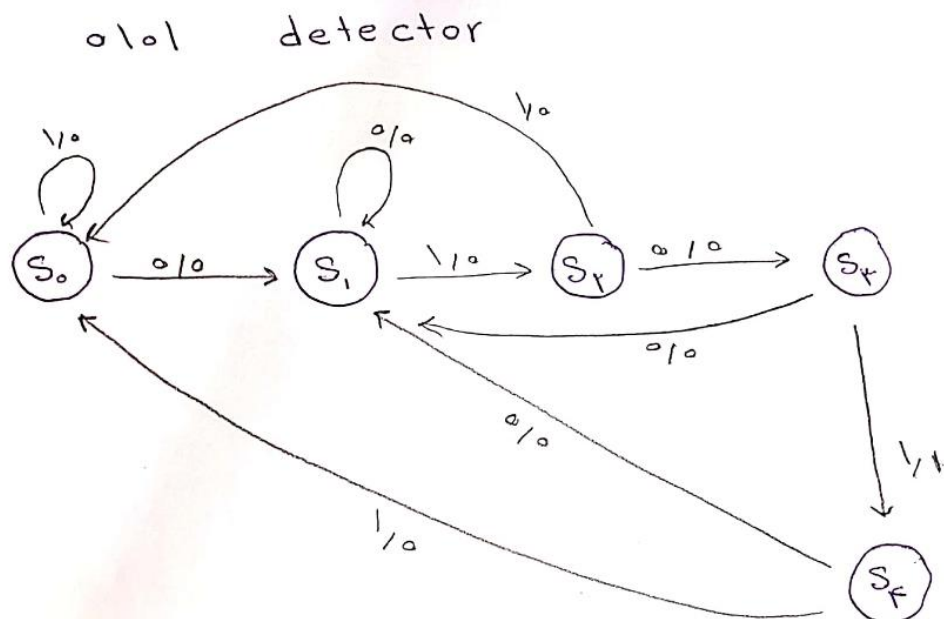 0101 detector
1/0
0/0
1/0
S0
0/0
S1
1/0
S۲
0/0
S۳
0/0
0/0
1/1
1/0
S۴